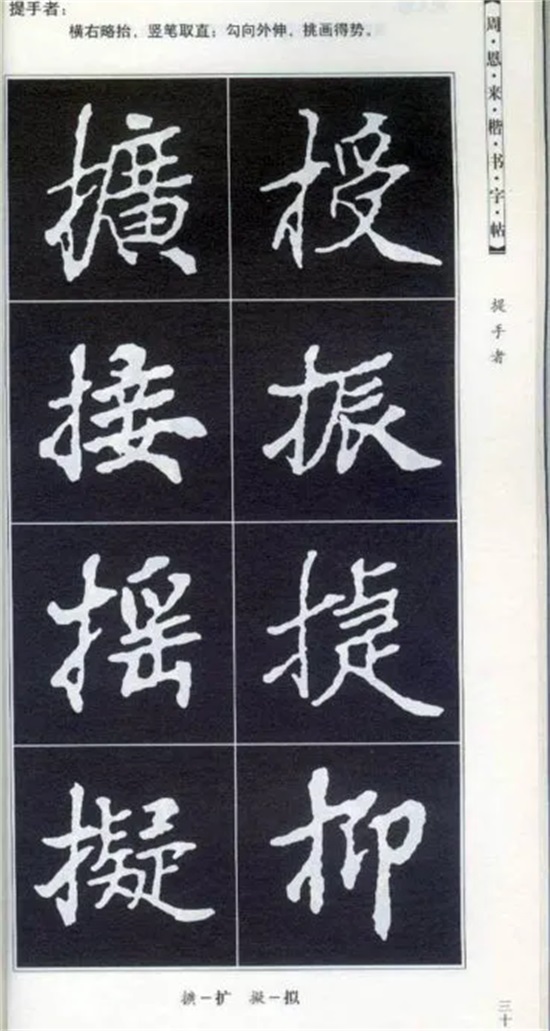 提手者：
横右略抬，竖笔取直；勾向外伸，挑画得势。
【周·恩·来·楷·书·字·帖】
提手者
授
振
捷
抑
擴
接
摇
擬
擴－扩 擬－拟
三十